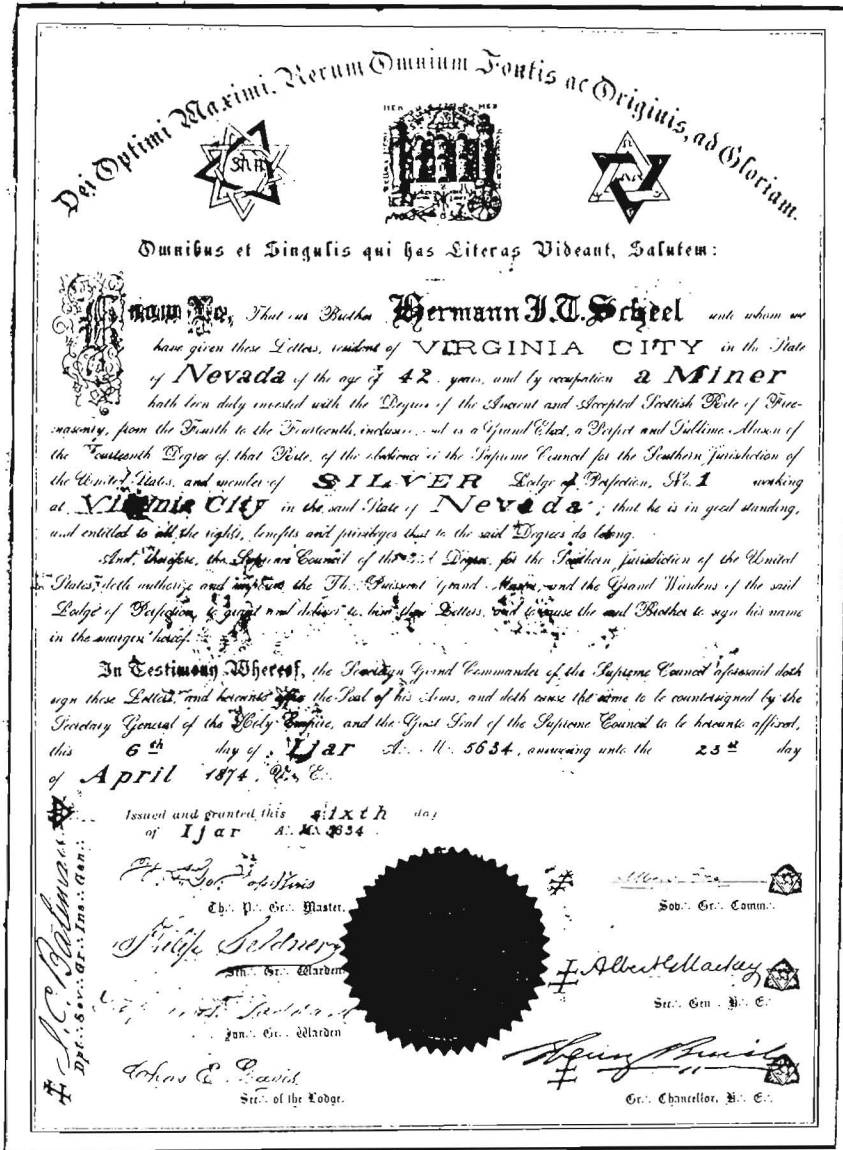 Dei Optimi Maximi, Rerum Omnium Fontis ac Originis, ad Gloriam.
Omnibus et Singulis qui has Literas Videant, Salutem:
Know Ye, That our Brother Hermann J. T. Scheel unto whom we
have given these Letters, resident of VIRGINIA CITY in the State
of Nevada of the age of 42 years, and by occupation a Miner
hath been duly invested with the Degrees of the Ancient and Accepted Scottish Rite of Free-
masonry, from the Fourth to the Fourteenth, inclusive, and is a Grand Elect, a Perfect and Sublime Mason of
the Fourteenth Degree of that Rite, of the obedience of the Supreme Council for the Southern Jurisdiction of
the United States, and member of SILVER Lodge of Perfection, No. 1 working
at Virginia City in the said State of Nevada; that he is in good standing,
and entitled to all the rights, benefits and privileges that to the said Degrees do belong.
And, therefore, the Supreme Council of the Degree, for the Southern Jurisdiction of the United
States, doth authorize and the Th. Puissant Grand Master, and the Grand Wardens of the said
Lodge of Perfection, to grant and deliver to him these Letters, and to cause the said Brother to sign his name
in the margin hereof.
In Testimony Whereof, the Sovereign Grand Commander of the Supreme Council aforesaid doth
sign these Letters, and hereunto affix the Seal of his Arms, and doth cause the same to be countersigned by the
Secretary General of the Holy Empire, and the Great Seal of the Supreme Council to be hereunto affixed,
this 6th day of Ijar A∴ M∴ 5634, answering unto the 23st day
of April 1874, V∴ E∴
Issued and granted this sixth day
of Ijar A∴ M∴ 5634
Th∴ P∴ Gr∴ Master.
Sov∴ Gr∴ Comm∴
Philip Seldner
Sen∴ Gr∴ Warden
Albert G Mackey
Sec∴ Gen∴ H∴ E∴
Jun∴ Gr∴ Warden
Chas E. Davis
Sec∴ of the Lodge.
Gr∴ Chancellor, H∴ E∴
Dpt∴ Sov∴ Gr∴ Ins∴ Gen∴